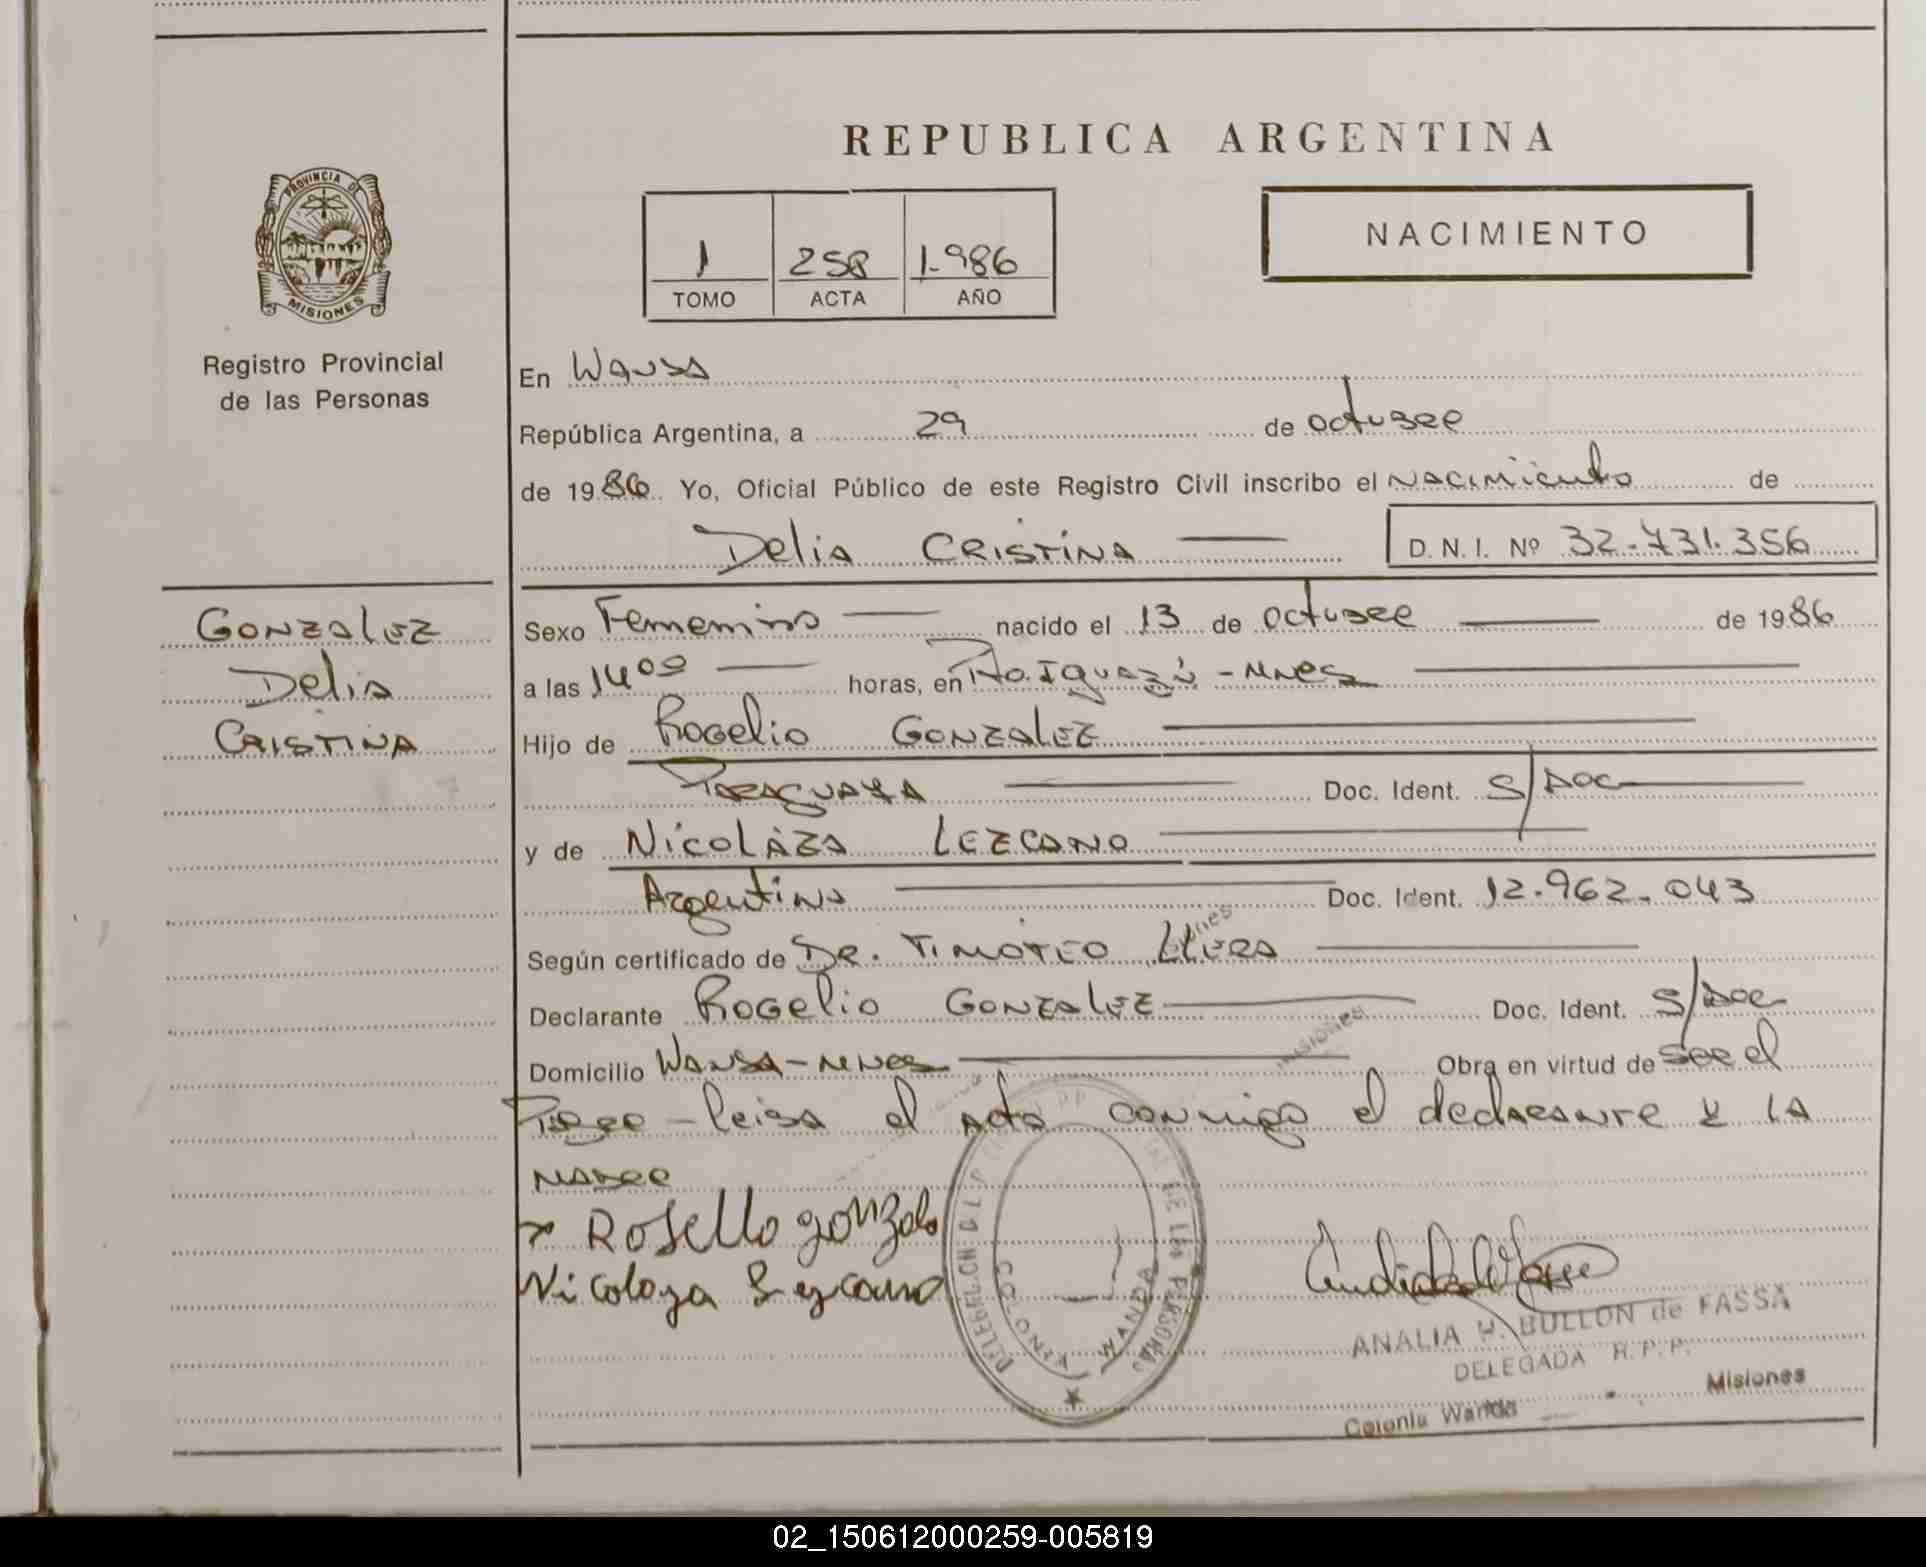 REPUBLICA ARGENTINA
PROVINCIA DE
MISIONES
Registro Provincial
de las Personas
1 258 1.986
TOMO ACTA AÑO
NACIMIENTO
En Wanda
República Argentina, a 29 de octubre
de 1986. Yo, Oficial Público de este Registro Civil inscribo el nacimiento de
Delia CRISTINA
D. N. I. Nº 32.731.356
GONZALEZ
Delia
CRISTINA
Sexo Femenino nacido el 13 de octubre de 1986
a las 14 00 horas, en Pto. Iguazú - Mnes
Hijo de Rogelio GONZALEZ
PARAGUAYA Doc. Ident. S/Doc
y de NICOLAZA LEZCANO
Argentina Doc. Ident. 12.962.043
Según certificado de DR. TIMOTEO LLERA
Declarante ROGELIO GONZALEZ Doc. Ident. S/Doc
Domicilio WANDA - Mnes Obra en virtud de ser el
Padre - leida el acta conmigo el declarante y LA
MADRE
x Rosello gonzale
Nicolaza Lezcano
DELEGACION DE LAS PERSONAS
COLONIA WANDA
ANALIA H. BULLON de FASSA
DELEGADA R. P. P.
Colonia Wanda Misiones
02_150612000259-005819